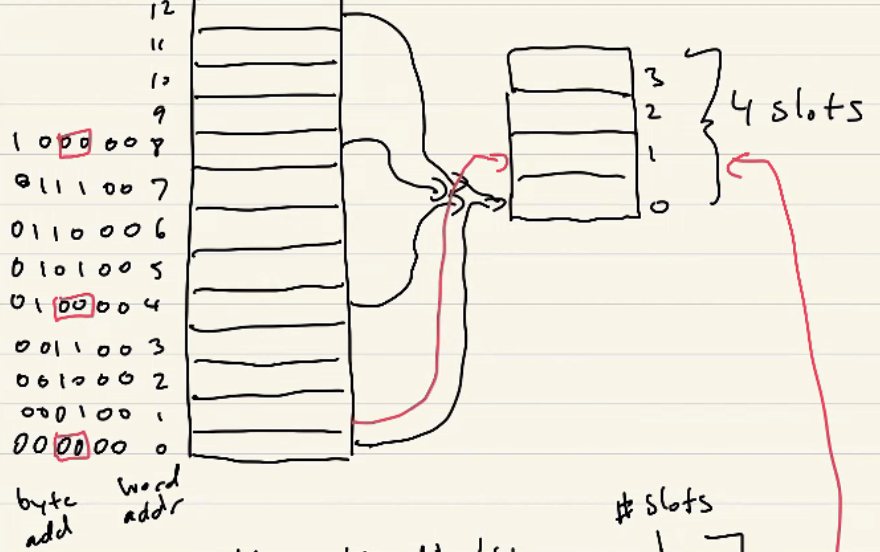 12
11
10
9
1 0 0 0 0 0 8
0 1 1 1 0 0 7
0 1 1 0 0 0 6
0 1 0 1 0 0 5
0 1 0 0 0 0 4
0 0 1 1 0 0 3
0 0 1 0 0 0 2
0 0 0 1 0 0 1
0 0 0 0 0 0 0
byte add
word addr
3
2
1
0
4 slots
# slots